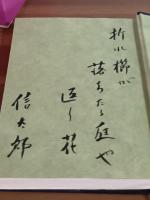 折れ櫛が
落ちたる庭や
返り花
信太郎